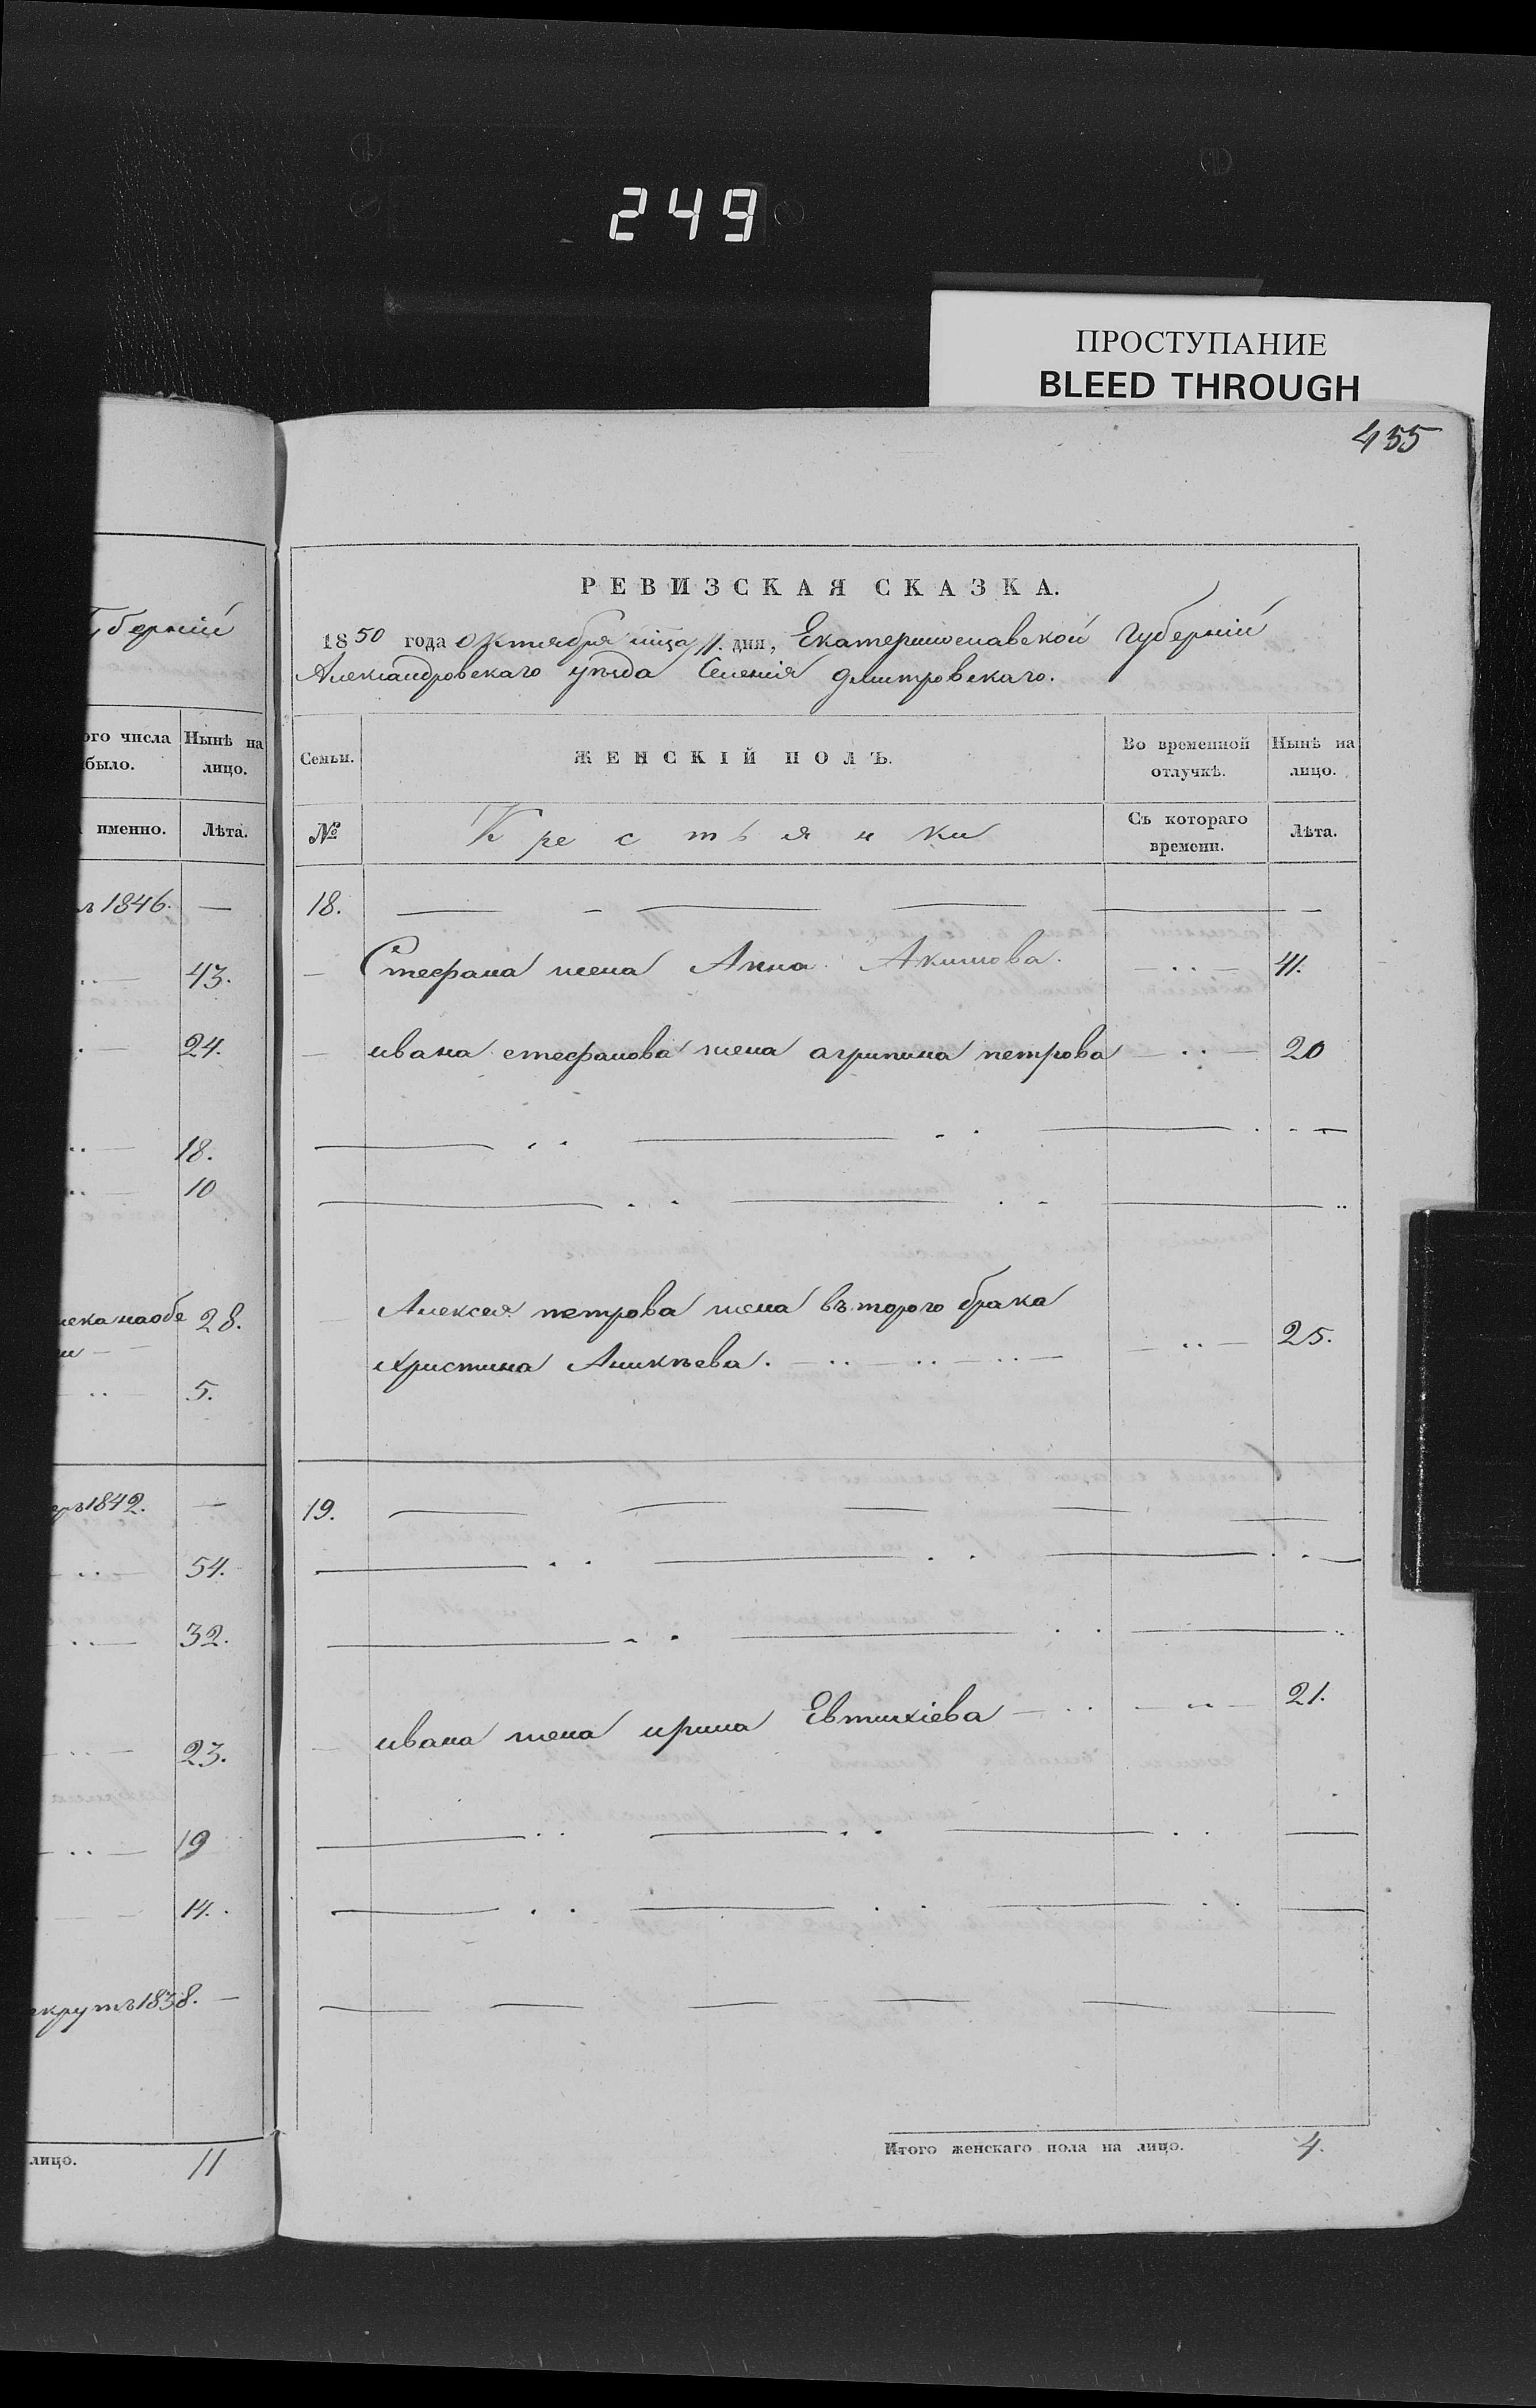 249
ПРОСТУПАНИЕ
BLEED THROUGH
455
РЕВИЗСКАЯ СКАЗКА.
1850 года октября мца 11. дня, Екатеринославской губернии
Александровского уезда Селения дмитровского.
Семьи. ЖЕНСКІЙ ПОЛЪ. Во временной отлучкѣ. Нынѣ на лицо.
№ Крестьянки Съ котораго времени. Лѣта.
18.
Стефана жена Анна Акимова. 41.
ивана стефанова жена агрипина петрова 20
Алексея петрова жена въторого брака
христина Аникѣева. 25.
19.
ивана жена ирина Евтихіева 21.
Итого женскаго пола на лицо. 4.
губерніи
ого числа было. Нынѣ на лицо.
именно. Лѣта.
1846.
43.
24.
18.
10
28.
5.
1842.
54.
32.
23.
19
14.
1838.
лицо. 11